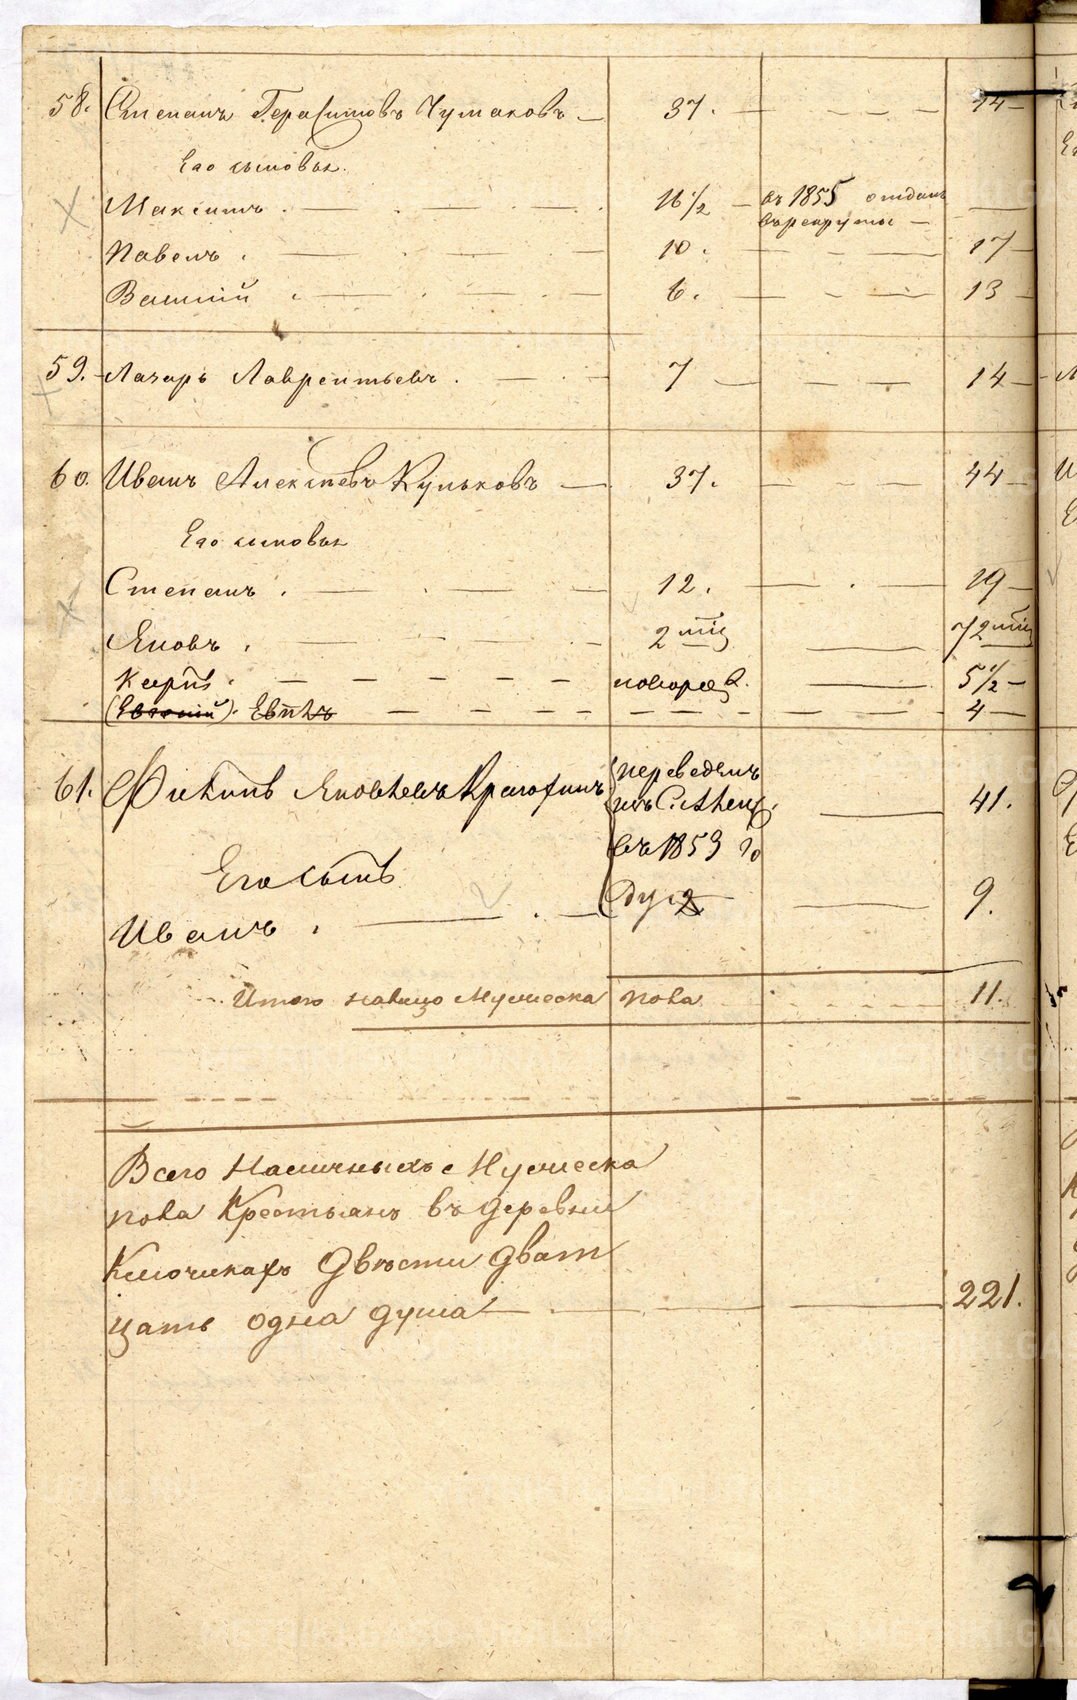 58. Степанъ Герасимовъ Чумаковъ 37. 44
Его сыновья.
Максимъ 16 1/2 въ 1855 отданъ
въ рекруты
Павелъ 10. 17
Василій 6. 13
59. Лазарь Лаврентьевъ 7 14
60. Иванъ Алексѣевъ Кульковъ 37. 44
Его сыновья
Степанъ 12. 19
Яковъ 2 мѣц 7 2 мѣц
Карпъ новорож. 5 1/2
(Евгеній). 4
61. Филипъ Яковлевъ переведенъ
изъ 41.
въ 1853 го
Его сынъ
9.
Иванъ
Итого налицо Мужеска пола 11.
Всего Наличныхъ Мужеска
пола Крестьянъ въ деревни
Ключикахъ Двѣсти дват
цать одна душа 221.